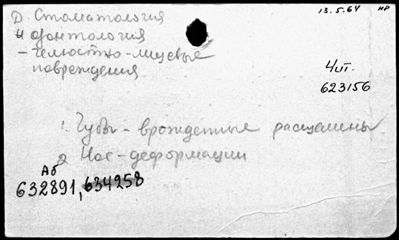 Д. Стоматология
и одонтология
- Челюстно-лицевые
повреждения
13.5.64 НР
Чит.
623156
1. Губы - врожденные расщелины
2 Нос - деформации
Аб
632891, 634258